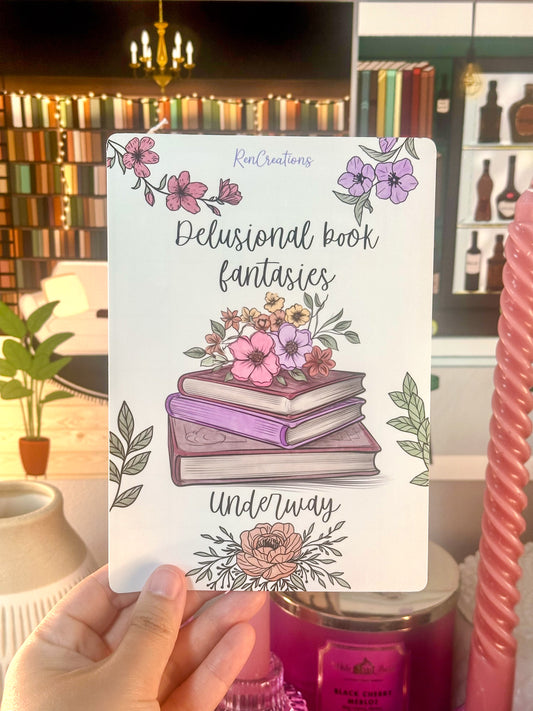 RenCreations
Delusional book
fantasies
Underway
BLACK CHERRY
MERLOT